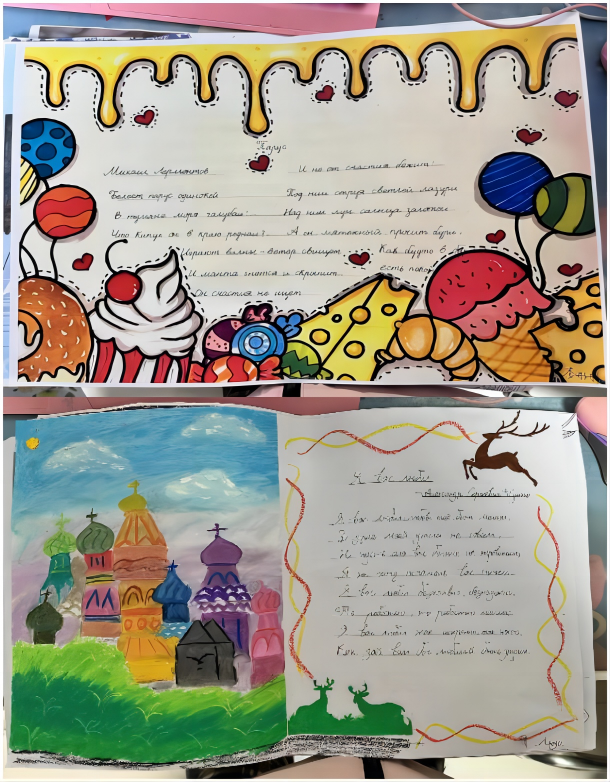 Парус
Михаил Лермонтов
Белеет парус одинокой
В тумане моря голубом!
Что кинул он в краю родном?
Играют волны - ветер свищет
И мачта гнется и скрипит
Он счастия не ищет
И не от счастия бежит!
Под ним струя светлей лазури
Над ним луч солнца золотой
А он мятежный просит бурю.
Как будто в
есть
Я вас любил
Александр Сергеевич
Я вас любил
В душе моей угасла не совсем
Но пусть она вас больше не тревожит
Я не хочу печалить вас ничем.
Я вас любил безмолвно, безнадежно
То робостью, то ревностью томим
Я вас любил так искренно, так нежно
Как дай вам бог любимой быть другим.